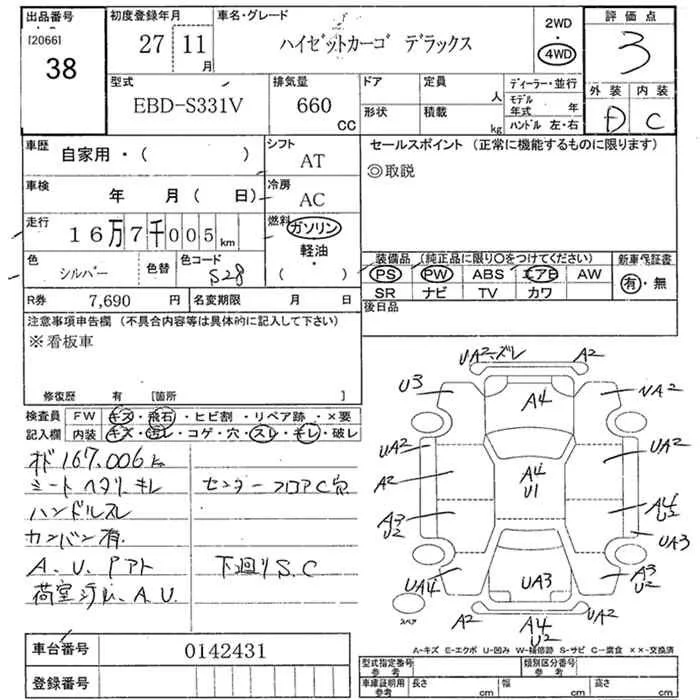 出品番号 初度登録年月 車名・グレード 2WD 評価点
[2066] 38 27 11月 ハイゼットカーゴ デラックス 4WD 3
型式 排気量 ドア 定員 人 ディーラー・並行 外装 内装
EBD-S331V 660 CC 形状 積載 kg モデル年式 年 D C
ハンドル 左・右
車歴 自家用・( ) シフト AT セールスポイント (正常に機能するものに限ります)
◎取説
車検 年 月 (日) 冷房 AC
走行 16万7千005km 燃料 ガソリン
軽油
( )
色 シルバー 色替 色コード S28 装備品 (純正品に限り○をつけてください) 新車保証書
PS PW ABS エアB AW 有・無
SR ナビ TV カワ
R券 7,690 円 名変期限 月 日 後日品
注意事項申告欄 (不具合内容等は具体的に記入して下さい)
※看板車
修復歴 有 [箇所 ]
検査員 FW キズ・飛石・ヒビ割・リペア跡・×要
記入欄 内装 キズ・汚レ・コゲ・穴・スレ・キレ・破レ
オド167,006k
シートヘタリ、キレ センターフロアC穴
ハンドルスレ
カンバン有
A、U、アト 下廻りS、C
荷室汚レ、A、U
UA2ズレ A2
U3 A4 UA2
UA2 UA2
A2 A4 U1 A4
A3 U2 UA3
UA4 UA3 A3 U2
スペア A2 A4 U2 UA2
A-キズ E-エクボ U-凹み W-補修跡 S-サビ C-腐食 ××-交換済
車台番号 0142431 型式指定番号 参考 類別区分番号 参考
登録番号 車庫証明用 参考 長さ cm 幅 cm 高さ cm